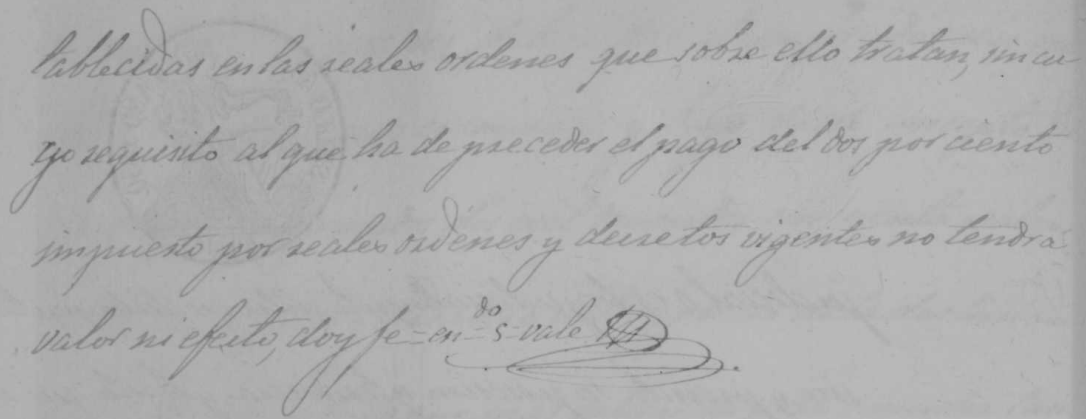 tablecidas en las reales ordenes que sobre ello tratan, sin cu
yo requisito al que ha de preceder el pago del dos por ciento
impuesto por reales ordenes y decretos vigentes no tendra
valor ni efecto, doy fe = en-do = s = vale